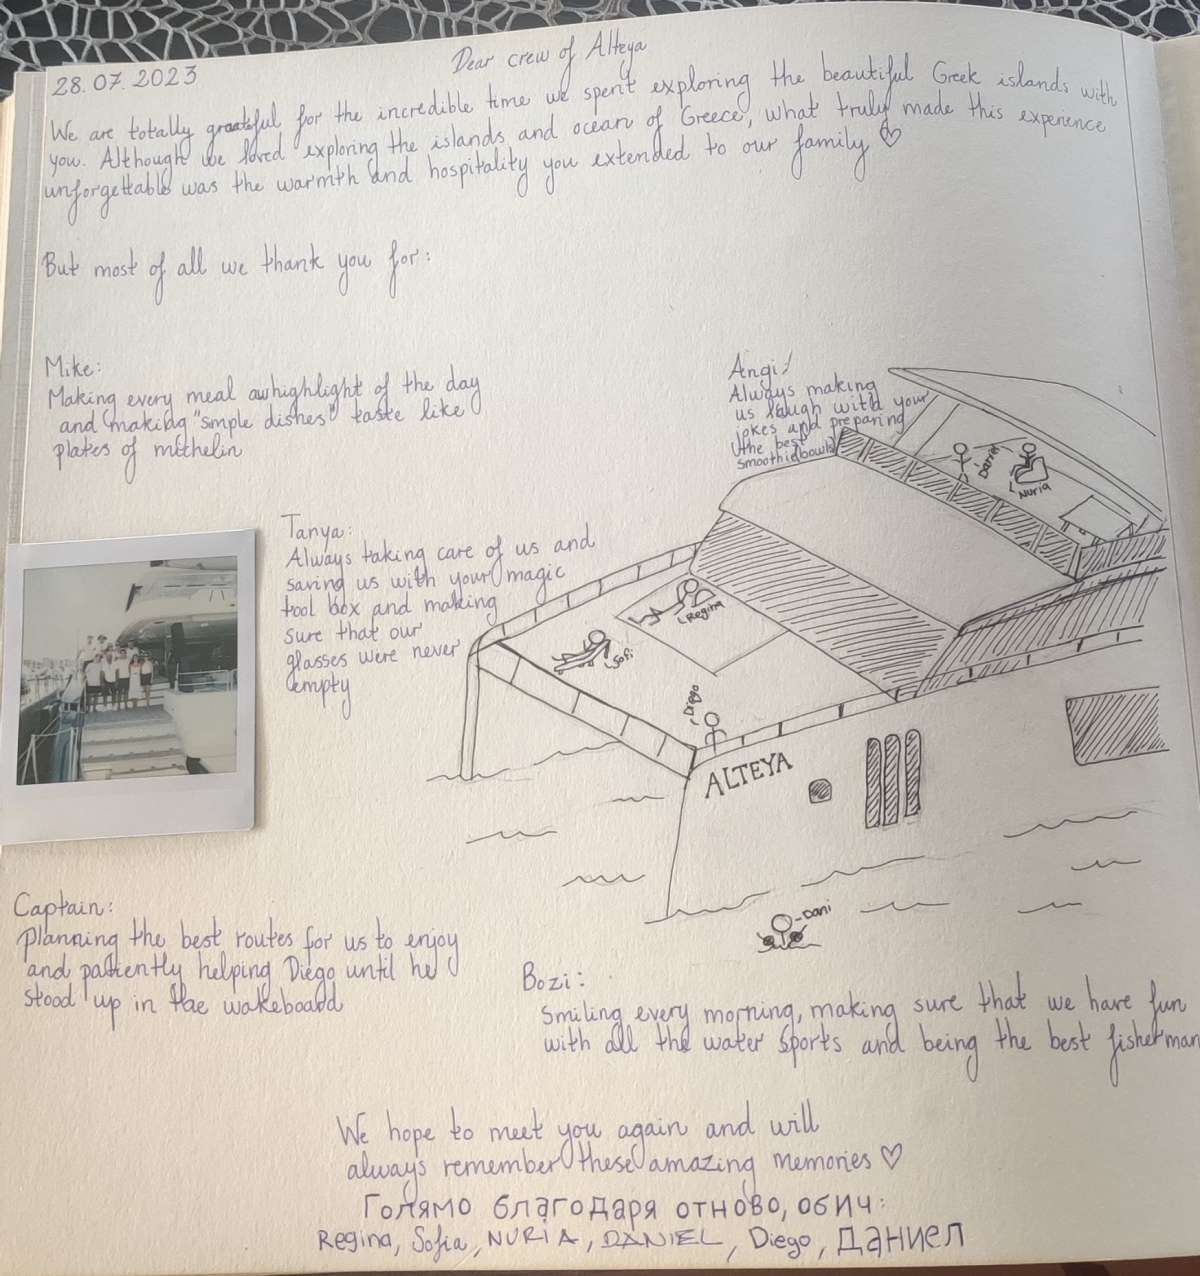 28.07.2023
Dear crew of Alteya
We are totally grateful for the incredible time we spent exploring the beautiful Greek islands with
you. Although we loved exploring the islands and ocean of Greece, what truly made this experience
unforgettable was the warmth and hospitality you extended to our family ♡
But most of all we thank you for:
Mike:
Making every meal a highlight of the day
and making "simple dishes" taste like
plates of michelin
Angi!
Always making
us laugh with your
jokes and preparing
the best
smoothiebowls
Daniel
Nuria
Tanya:
Always taking care of us and
saving us with your magic
tool box and making
sure that our
glasses were never
empty
Regina
Sofi
Diego
ALTEYA
Dani
Captain:
planning the best routes for us to enjoy
and patiently helping Diego until he
stood up in the wakeboard
Bozi:
Smiling every morning, making sure that we have fun
with all the water sports and being the best fisherman
We hope to meet you again and will
always remember these amazing memories ♡
Голямо благодаря отново, обич:
Regina, Sofia, NURIA, DANIEL, Diego, Даниел